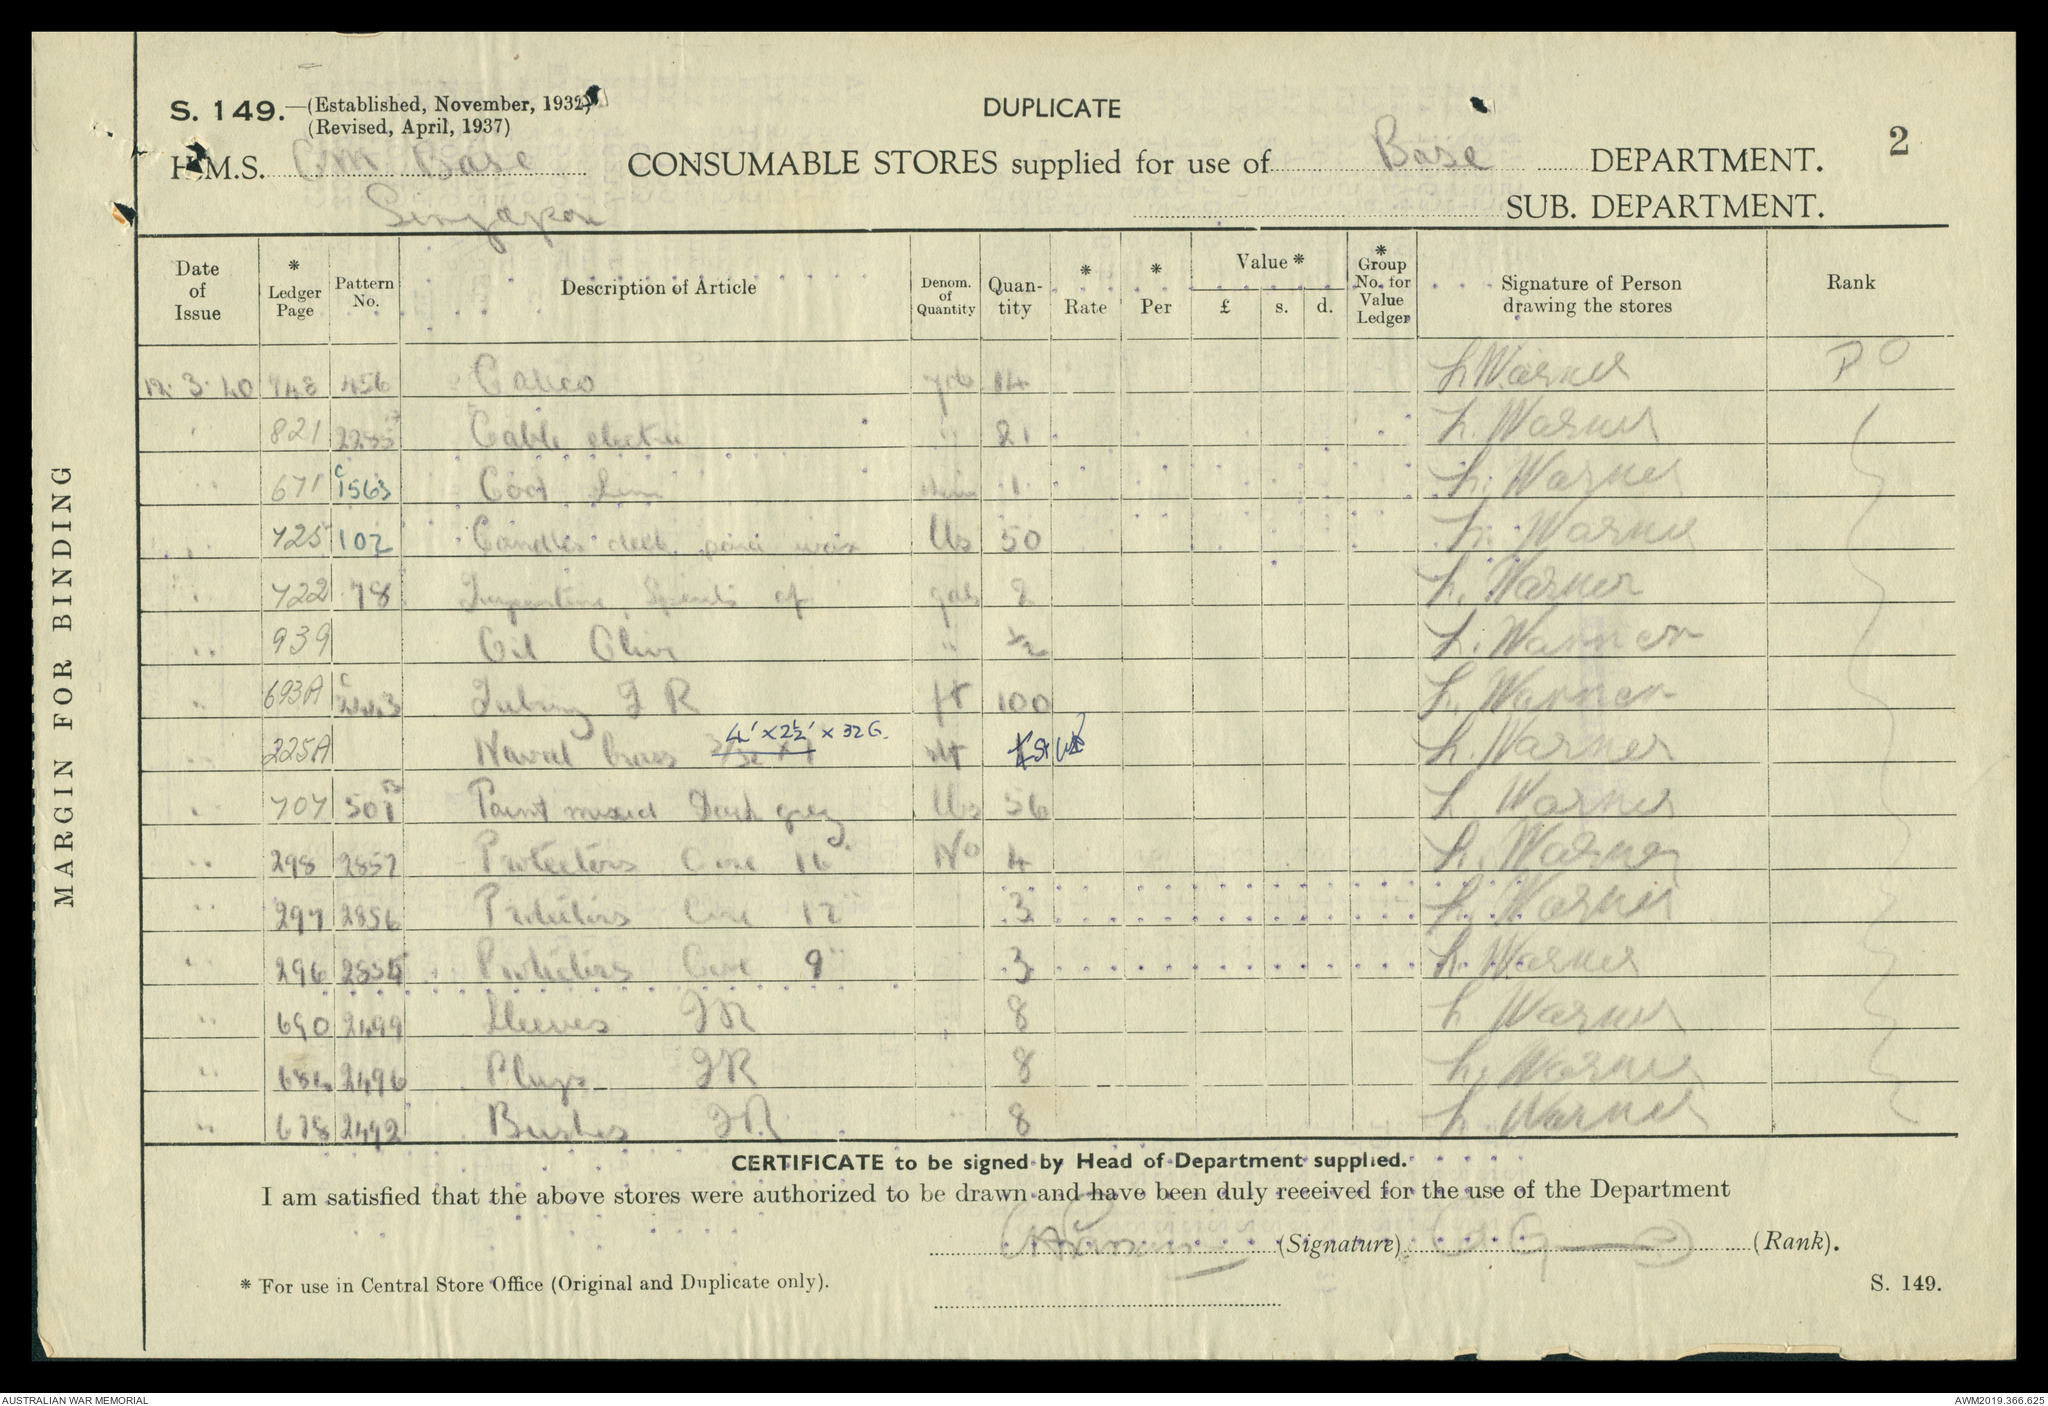 S. 149.—(Established, November, 1932)
(Revised, April, 1937)
DUPLICATE
2
H.M.S. Base CONSUMABLE STORES supplied for use of Base DEPARTMENT.
Singapore SUB. DEPARTMENT.
MARGIN FOR BINDING
Date of Issue * Ledger Page Pattern No. Description of Article Denom. of Quantity Quantity * Rate * Per Value * £ s. d. * Group No. for Value Ledger Signature of Person drawing the stores Rank
12.3.40 748 456 Calico yds 14 L Warner PO
" 821 Cable electric " 21 L. Warner
" 671 C 1563 Cord 1 L. Warner
" 725 102 Candles wax lbs 50 L. Warner
" 722 78 Turpentine, Spirits of gals 2 L. Warner
" 939 Oil Olive " ½ L. Warner
" 693A C 2443 Tubing I R ft 100 L. Warner
" 225A Naval brass 4' x 2½' x 32G. L. Warner
" 707 501 B Paint mixed Dark grey lbs 56 L Warner
" 298 2857 Protectors 16" No 4 L. Warner
" 297 2856 Protectors 12" 3 L. Warner
" 296 2855 Protectors 9" 3 L. Warner
" 690 2499 Sleeves IR 8 L. Warner
" 684 2496 Plugs IR 8 L. Warner
" 678 2492 Bushes IR 8 L. Warner
CERTIFICATE to be signed by Head of Department supplied.
I am satisfied that the above stores were authorized to be drawn and have been duly received for the use of the Department
(Signature) (Rank).
* For use in Central Store Office (Original and Duplicate only).
S. 149.
AUSTRALIAN WAR MEMORIAL
AWM2019.366.625